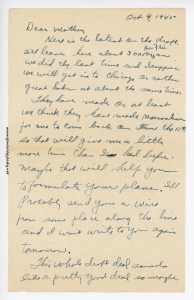 Oct 9, 1945
Dear Mother,
Here is the latest on the dope.
We leave here about 3:00 for
we did the last time and I suppose
we will get in to Chicago or rather
great lakes at about the same time.
They have made or at least
we think they have made
for me to come back on the 11th
so that will give me a little
more time than I had before.
Maybe that will help you
to formulate your plans. I'll
probably send you a wire
from some place along the line
and I wont write to you again
tomorrow.
This whole draft deal sounds
like a pretty good deal so maybe